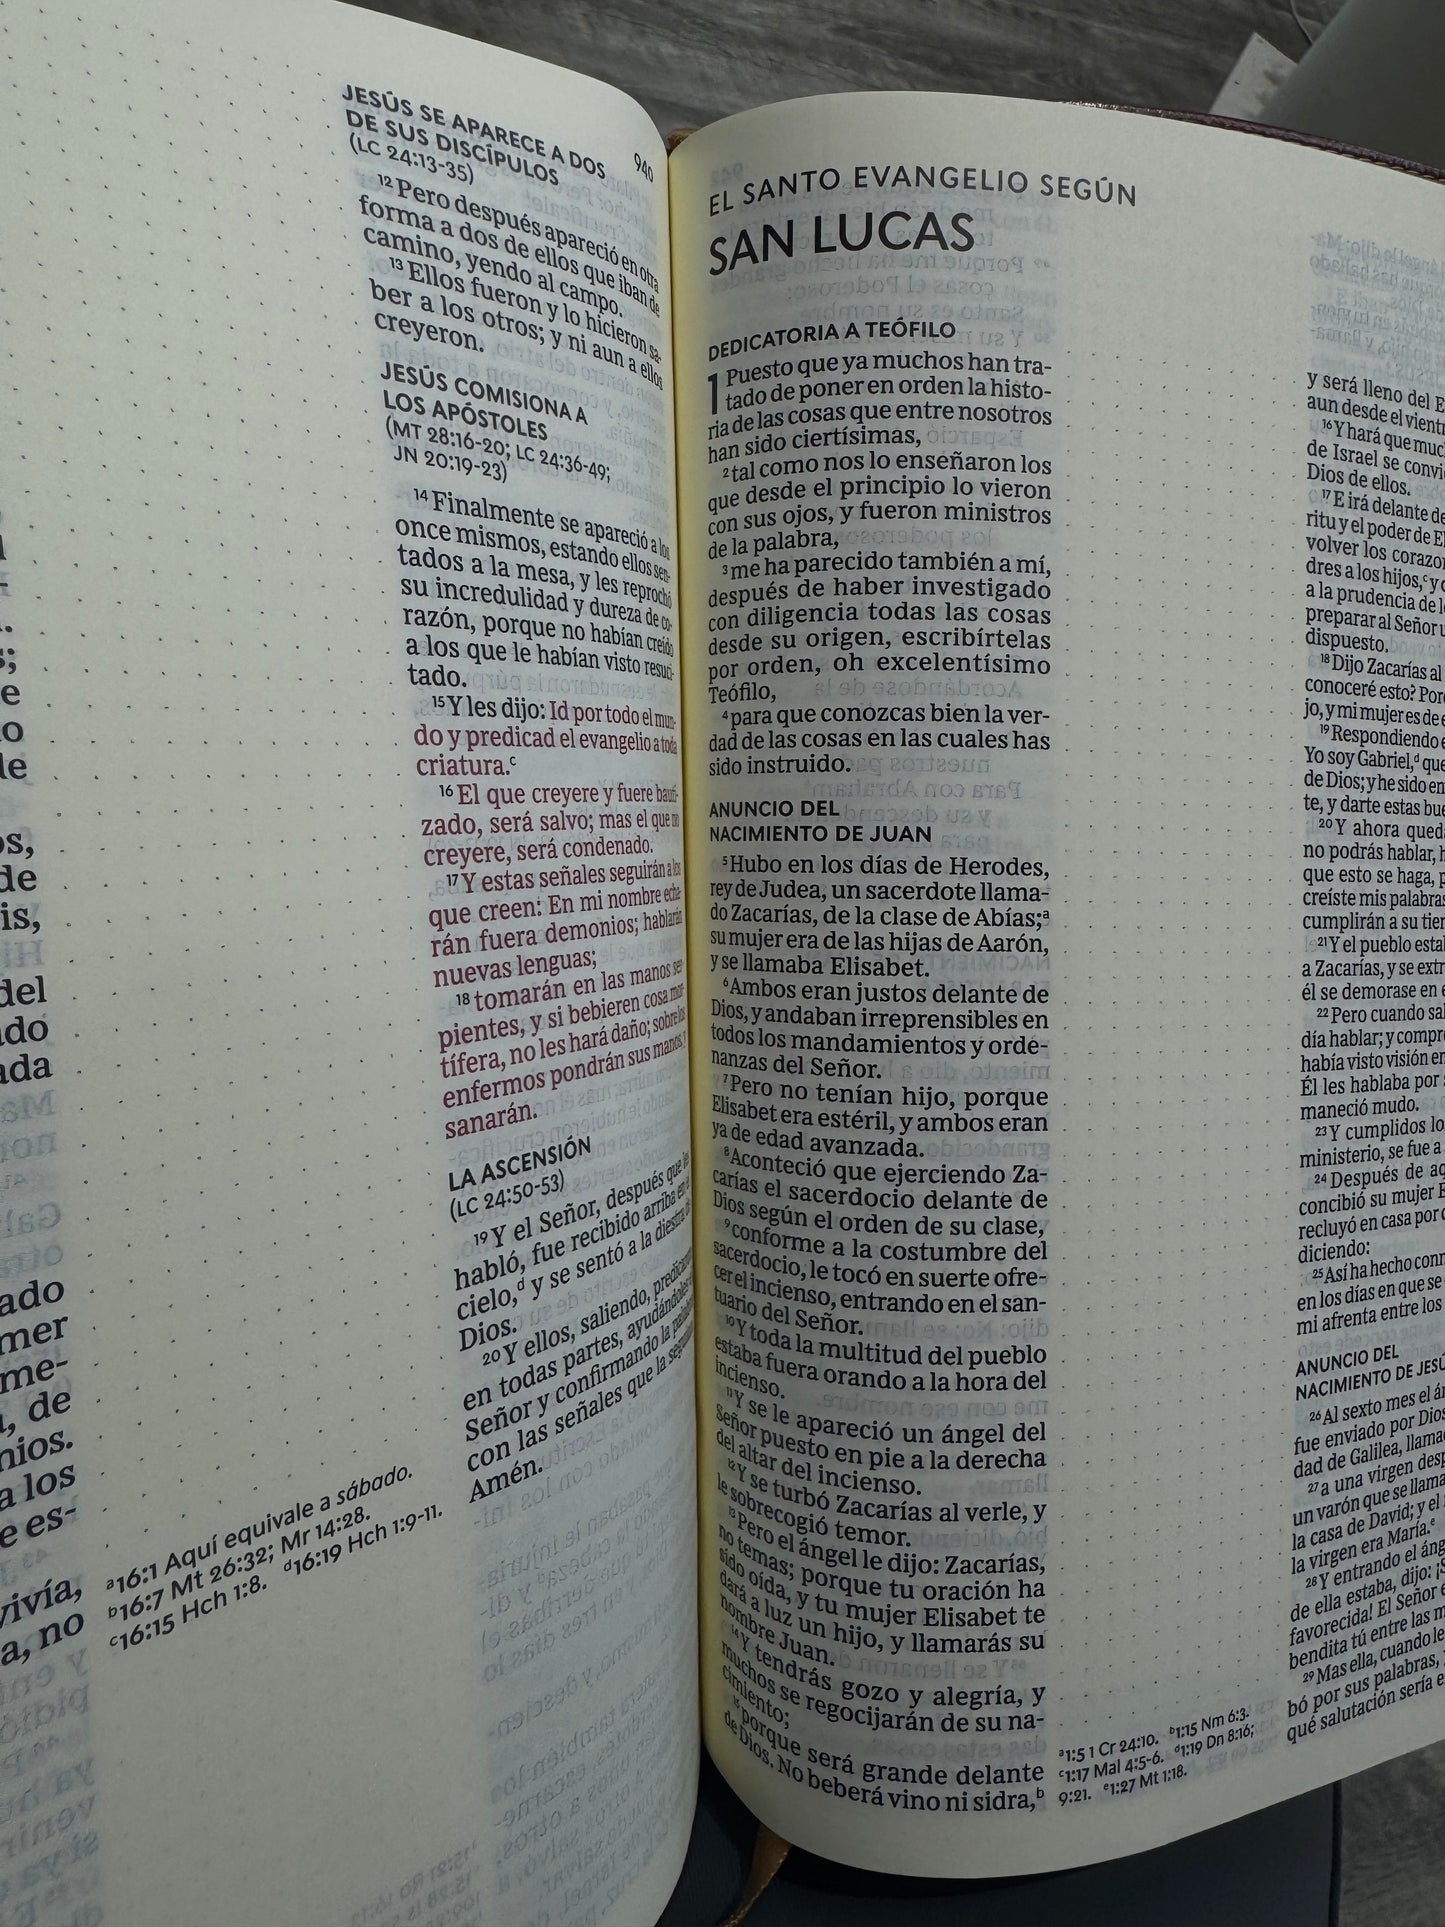 940
JESÚS SE APARECE A DOS
DE SUS DISCÍPULOS
(LC 24:13-35)
12 Pero después apareció en otra
forma a dos de ellos que iban de
camino, yendo al campo.
13 Ellos fueron y lo hicieron sa-
ber a los otros; y ni aun a ellos
creyeron.
JESÚS COMISIONA A
LOS APÓSTOLES
(MT 28:16-20; LC 24:36-49;
JN 20:19-23)
14 Finalmente se apareció a los
once mismos, estando ellos sen-
tados a la mesa, y les reprochó
su incredulidad y dureza de co-
razón, porque no habían creído
a los que le habían visto resuci-
tado.
15 Y les dijo: Id por todo el mun-
do y predicad el evangelio a toda
criatura.c
16 El que creyere y fuere bauti-
zado, será salvo; mas el que no
creyere, será condenado.
17 Y estas señales seguirán a los
que creen: En mi nombre echa-
rán fuera demonios; hablarán
nuevas lenguas;
18 tomarán en las manos ser-
pientes, y si bebieren cosa mor-
tífera, no les hará daño; sobre los
enfermos pondrán sus manos, y
sanarán.
LA ASCENSIÓN
(LC 24:50-53)
19 Y el Señor, después que les
habló, fue recibido arriba en el
cielo,d y se sentó a la diestra de
Dios.
20 Y ellos, saliendo, predicaron
en todas partes, ayudándoles el
Señor y confirmando la palabra
con las señales que la seguían.
Amén.
a16:1 Aquí equivale a sábado.
b16:7 Mt 26:32; Mr 14:28.
c16:15 Hch 1:8. d16:19 Hch 1:9-11.
EL SANTO EVANGELIO SEGÚN
SAN LUCAS
DEDICATORIA A TEÓFILO
1 Puesto que ya muchos han tra-
tado de poner en orden la histo-
ria de las cosas que entre nosotros
han sido ciertísimas,
2 tal como nos lo enseñaron los
que desde el principio lo vieron
con sus ojos, y fueron ministros
de la palabra,
3 me ha parecido también a mí,
después de haber investigado
con diligencia todas las cosas
desde su origen, escribírtelas
por orden, oh excelentísimo
Teófilo,
4 para que conozcas bien la ver-
dad de las cosas en las cuales has
sido instruido.
ANUNCIO DEL
NACIMIENTO DE JUAN
5 Hubo en los días de Herodes,
rey de Judea, un sacerdote llama-
do Zacarías, de la clase de Abías;a
su mujer era de las hijas de Aarón,
y se llamaba Elisabet.
6 Ambos eran justos delante de
Dios, y andaban irreprensibles en
todos los mandamientos y orde-
nanzas del Señor.
7 Pero no tenían hijo, porque
Elisabet era estéril, y ambos eran
ya de edad avanzada.
8 Aconteció que ejerciendo Za-
carías el sacerdocio delante de
Dios según el orden de su clase,
9 conforme a la costumbre del
sacerdocio, le tocó en suerte ofre-
cer el incienso, entrando en el san-
tuario del Señor.
10 Y toda la multitud del pueblo
estaba fuera orando a la hora del
incienso.
11 Y se le apareció un ángel del
Señor puesto en pie a la derecha
del altar del incienso.
12 Y se turbó Zacarías al verle, y
le sobrecogió temor.
13 Pero el ángel le dijo: Zacarías,
no temas; porque tu oración ha
sido oída, y tu mujer Elisabet te
dará a luz un hijo, y llamarás su
nombre Juan.
14 Y tendrás gozo y alegría, y
muchos se regocijarán de su na-
cimiento;
15 porque será grande delante
de Dios. No beberá vino ni sidra,b
y será lleno del
aun desde el
16 Y hará que
de Israel se
Dios de ellos.
17 E irá delante de
ritu y el poder de
volver los
dres a los hijos,c y
a la prudencia de
preparar al Señor
dispuesto.
18 Dijo Zacarías al
conoceré esto?
jo, y mi mujer es de
19 Respondiendo
Yo soy Gabriel,d que
de Dios; y he sido
te, y darte estas
20 Y ahora
no podrás hablar,
que esto se haga,
creíste mis palabras
cumplirán a su
21 Y el pueblo
a Zacarías, y se
él se demorase en
22 Pero cuando
día hablar; y
había visto visión en
Él les hablaba por
maneció mudo.
23 Y cumplidos
ministerio, se fue a
24 Después de
concibió su mujer
recluyó en casa por
diciendo:
25 Así ha hecho
en los días en que se
mi afrenta entre los
ANUNCIO DEL
NACIMIENTO DE JESÚ
26 Al sexto mes el
fue enviado por Dios
dad de Galilea,
27 a una virgen
un varón que se
la casa de David; y el
la virgen era María.e
28 Y entrando el
de ella estaba, dijo:
favorecida! El Señor
bendita tú entre las
29 Mas ella, cuando le
bó por sus palabras,
qué salutación sería
a1:5 1 Cr 24:10. b1:15 Nm 6:3.
c1:17 Mal 4:5-6. d1:19 Dn 8:16;
9:21. e1:27 Mt 1:18.